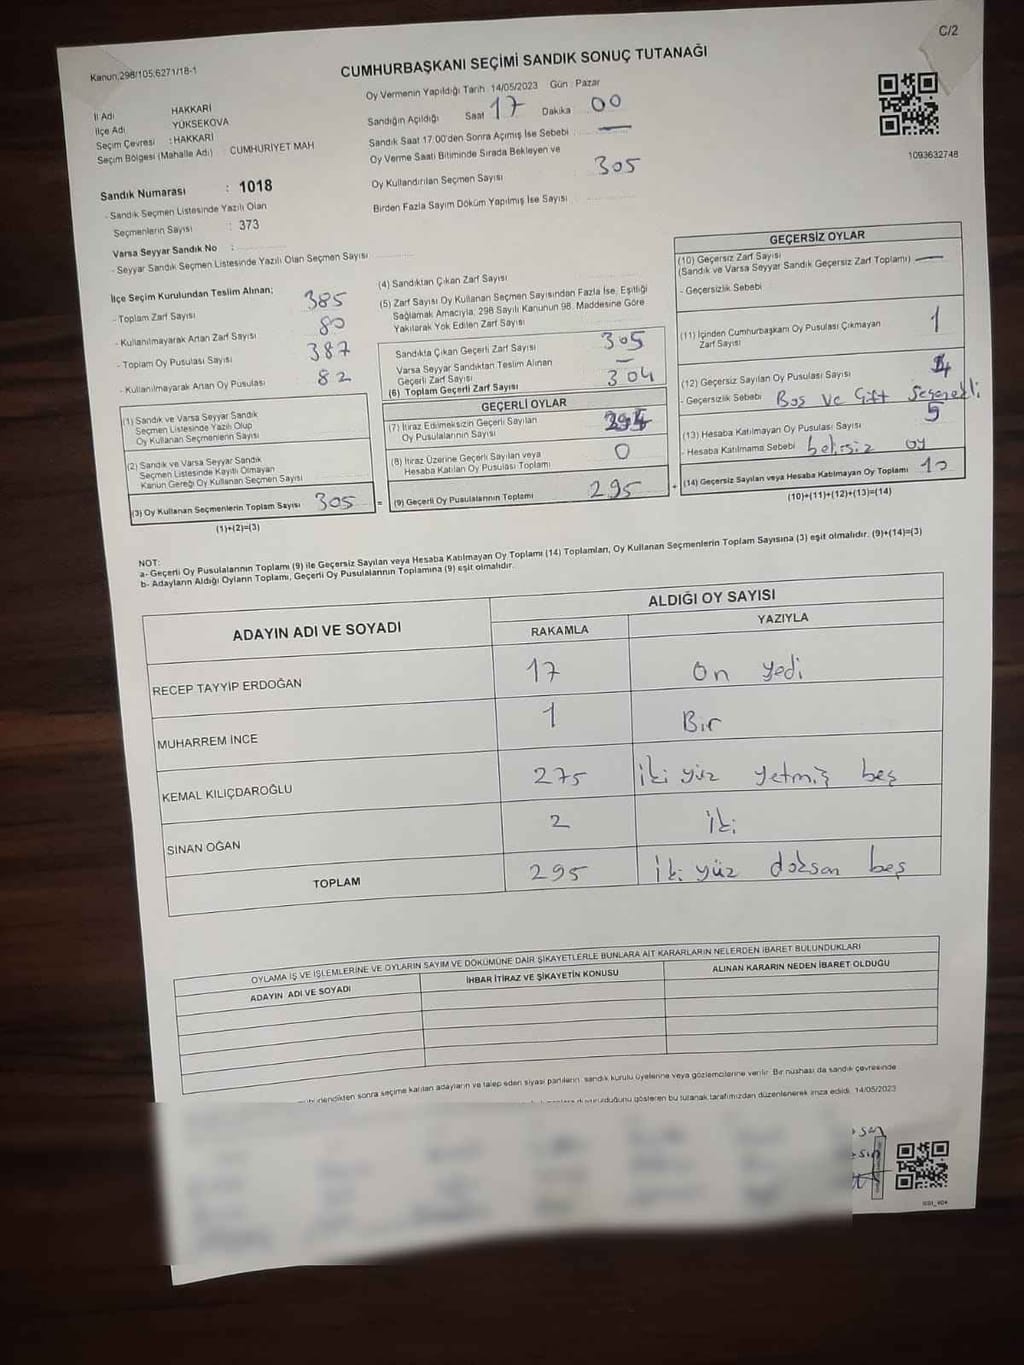 C/2
Kanun,298/105;6271/18-1
CUMHURBAŞKANI SEÇİMİ SANDIK SONUÇ TUTANAĞI
İl Adı HAKKARİ
İlçe Adı YÜKSEKOVA
Seçim Çevresi : HAKKARİ
Seçim Bölgesi (Mahalle Adı) CUMHURİYET MAH
Sandık Numarası : 1018
- Sandık Seçmen Listesinde Yazılı Olan
Seçmenlerin Sayısı : 373
Varsa Seyyar Sandık No :
- Seyyar Sandık Seçmen Listesinde Yazılı Olan Seçmen Sayısı
Oy Vermenin Yapıldığı Tarih : 14/05/2023 Gün : Pazar
Sandığın Açıldığı Saat 17 Dakika 00
Sandık Saat 17.00'den Sonra Açımış İse Sebebi —
Oy Verme Saati Bitiminde Sırada Bekleyen ve
Oy Kullandırılan Seçmen Sayısı 305
Birden Fazla Sayım Döküm Yapılmış İse Sayısı
1093632748
İlçe Seçim Kurulundan Teslim Alınan;
- Toplam Zarf Sayısı 385
- Kullanılmayarak Artan Zarf Sayısı 80
- Toplam Oy Pusulası Sayısı 387
- Kullanılmayarak Artan Oy Pusulası 82
(1) Sandık ve Varsa Seyyar Sandık
Seçmen Listesinde Yazılı Olup
Oy Kullanan Seçmenlerin Sayısı
(2) Sandık ve Varsa Seyyar Sandık
Seçmen Listesinde Kayıtlı Olmayan
Kanun Gereği Oy Kullanan Seçmen Sayısı
(3) Oy Kullanan Seçmenlerin Toplam Sayısı 305 =
(1)+(2)=(3)
(4) Sandıktan Çıkan Zarf Sayısı
(5) Zarf Sayısı Oy Kullanan Seçmen Sayısından Fazla İse, Eşitliği
Sağlamak Amacıyla, 298 Sayılı Kanunun 98. Maddesine Göre
Yakılarak Yok Edilen Zarf Sayısı
Sandıkta Çıkan Geçerli Zarf Sayısı 305
Varsa Seyyar Sandıktan Teslim Alınan
Geçerli Zarf Sayısı —
(6) Toplam Geçerli Zarf Sayısı 304
GEÇERLİ OYLAR
(7) İtiraz Edilmeksizin Geçerli Sayılan
Oy Pusulalarının Sayısı
(8) İtiraz Üzerine Geçerli Sayılan veya
Hesaba Katılan Oy Pusulası Toplamı 0
(9) Geçerli Oy Pusulalarının Toplamı 295 +
GEÇERSİZ OYLAR
(10) Geçersiz Zarf Sayısı
(Sandık ve Varsa Seyyar Sandık Geçersiz Zarf Toplamı) —
- Geçersizlik Sebebi
(11) İçinden Cumhurbaşkanı Oy Pusulası Çıkmayan
Zarf Sayısı 1
(12) Geçersiz Sayılan Oy Pusulası Sayısı 4
- Geçersizlik Sebebi Boş ve Çift Seçenekli
(13) Hesaba Katılmayan Oy Pusulası Sayısı 5
- Hesaba Katılmama Sebebi oy
(14) Geçersiz Sayılan veya Hesaba Katılmayan Oy Toplamı 10
(10)+(11)+(12)+(13)=(14)
NOT:
a- Geçerli Oy Pusulalarının Toplamı (9) ile Geçersiz Sayılan veya Hesaba Katılmayan Oy Toplamı (14) Toplamları, Oy Kullanan Seçmenlerin Toplam Sayısına (3) eşit olmalıdır. (9)+(14)=(3)
b- Adayların Aldığı Oyların Toplamı, Geçerli Oy Pusulalarının Toplamına (9) eşit olmalıdır.
ADAYIN ADI VE SOYADI ALDIĞI OY SAYISI
RAKAMLA YAZIYLA
RECEP TAYYİP ERDOĞAN 17 On yedi
MUHARREM İNCE 1 Bir
KEMAL KILIÇDAROĞLU 275 iki yüz yetmiş beş
SİNAN OĞAN 2 iki
TOPLAM 295 iki yüz doksan beş
OYLAMA İŞ VE İŞLEMLERİNE VE OYLARIN SAYIM VE DÖKÜMÜNE DAİR ŞİKAYETLERLE BUNLARA AİT KARARLARIN NELERDEN İBARET BULUNDUKLARI
ADAYIN ADI VE SOYADI İHBAR İTİRAZ VE ŞİKAYETİN KONUSU ALINAN KARARIN NEDEN İBARET OLDUĞU
sonra seçime katılan adayların ve talep eden siyasi partilerin sandık kurulu üyelerine veya gözlemcilerine verilir. Bir nüshası da sandık çevresinde
gösteren bu tutanak tarafımızdan düzenlenerek imza edildi. 14/05/2023